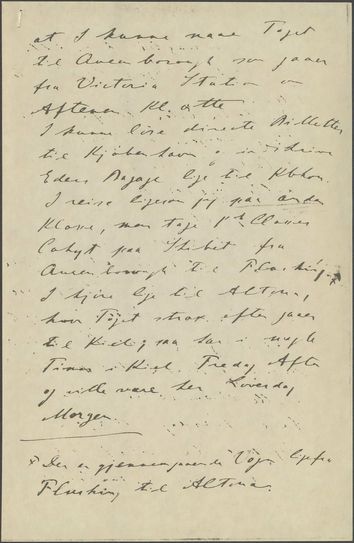 at I kunne naae Toget
til Queenborough som gaaer
fra Victoria Station om
Aftenen Kl. otte
I kunne löse directe Billetter
til Kjöbenhavn og indskrive
Eders Bagage lige til Kbhvn.
I reise ligesom jeg paa anden
Klasse, men tage 1st Classes
Cahyt paa Skibet fra
Queenborough til Flushing.x
I kjöre lige til Altona,
hvor Töget strax efter gaaer
til Kiel, og saa har I nogle
Timer i Kiel Fredag Aften
og ville være her Löverdag
Morgen.
x Der er gjennemgaaende Vogn lige fra
Flushing til Altona.